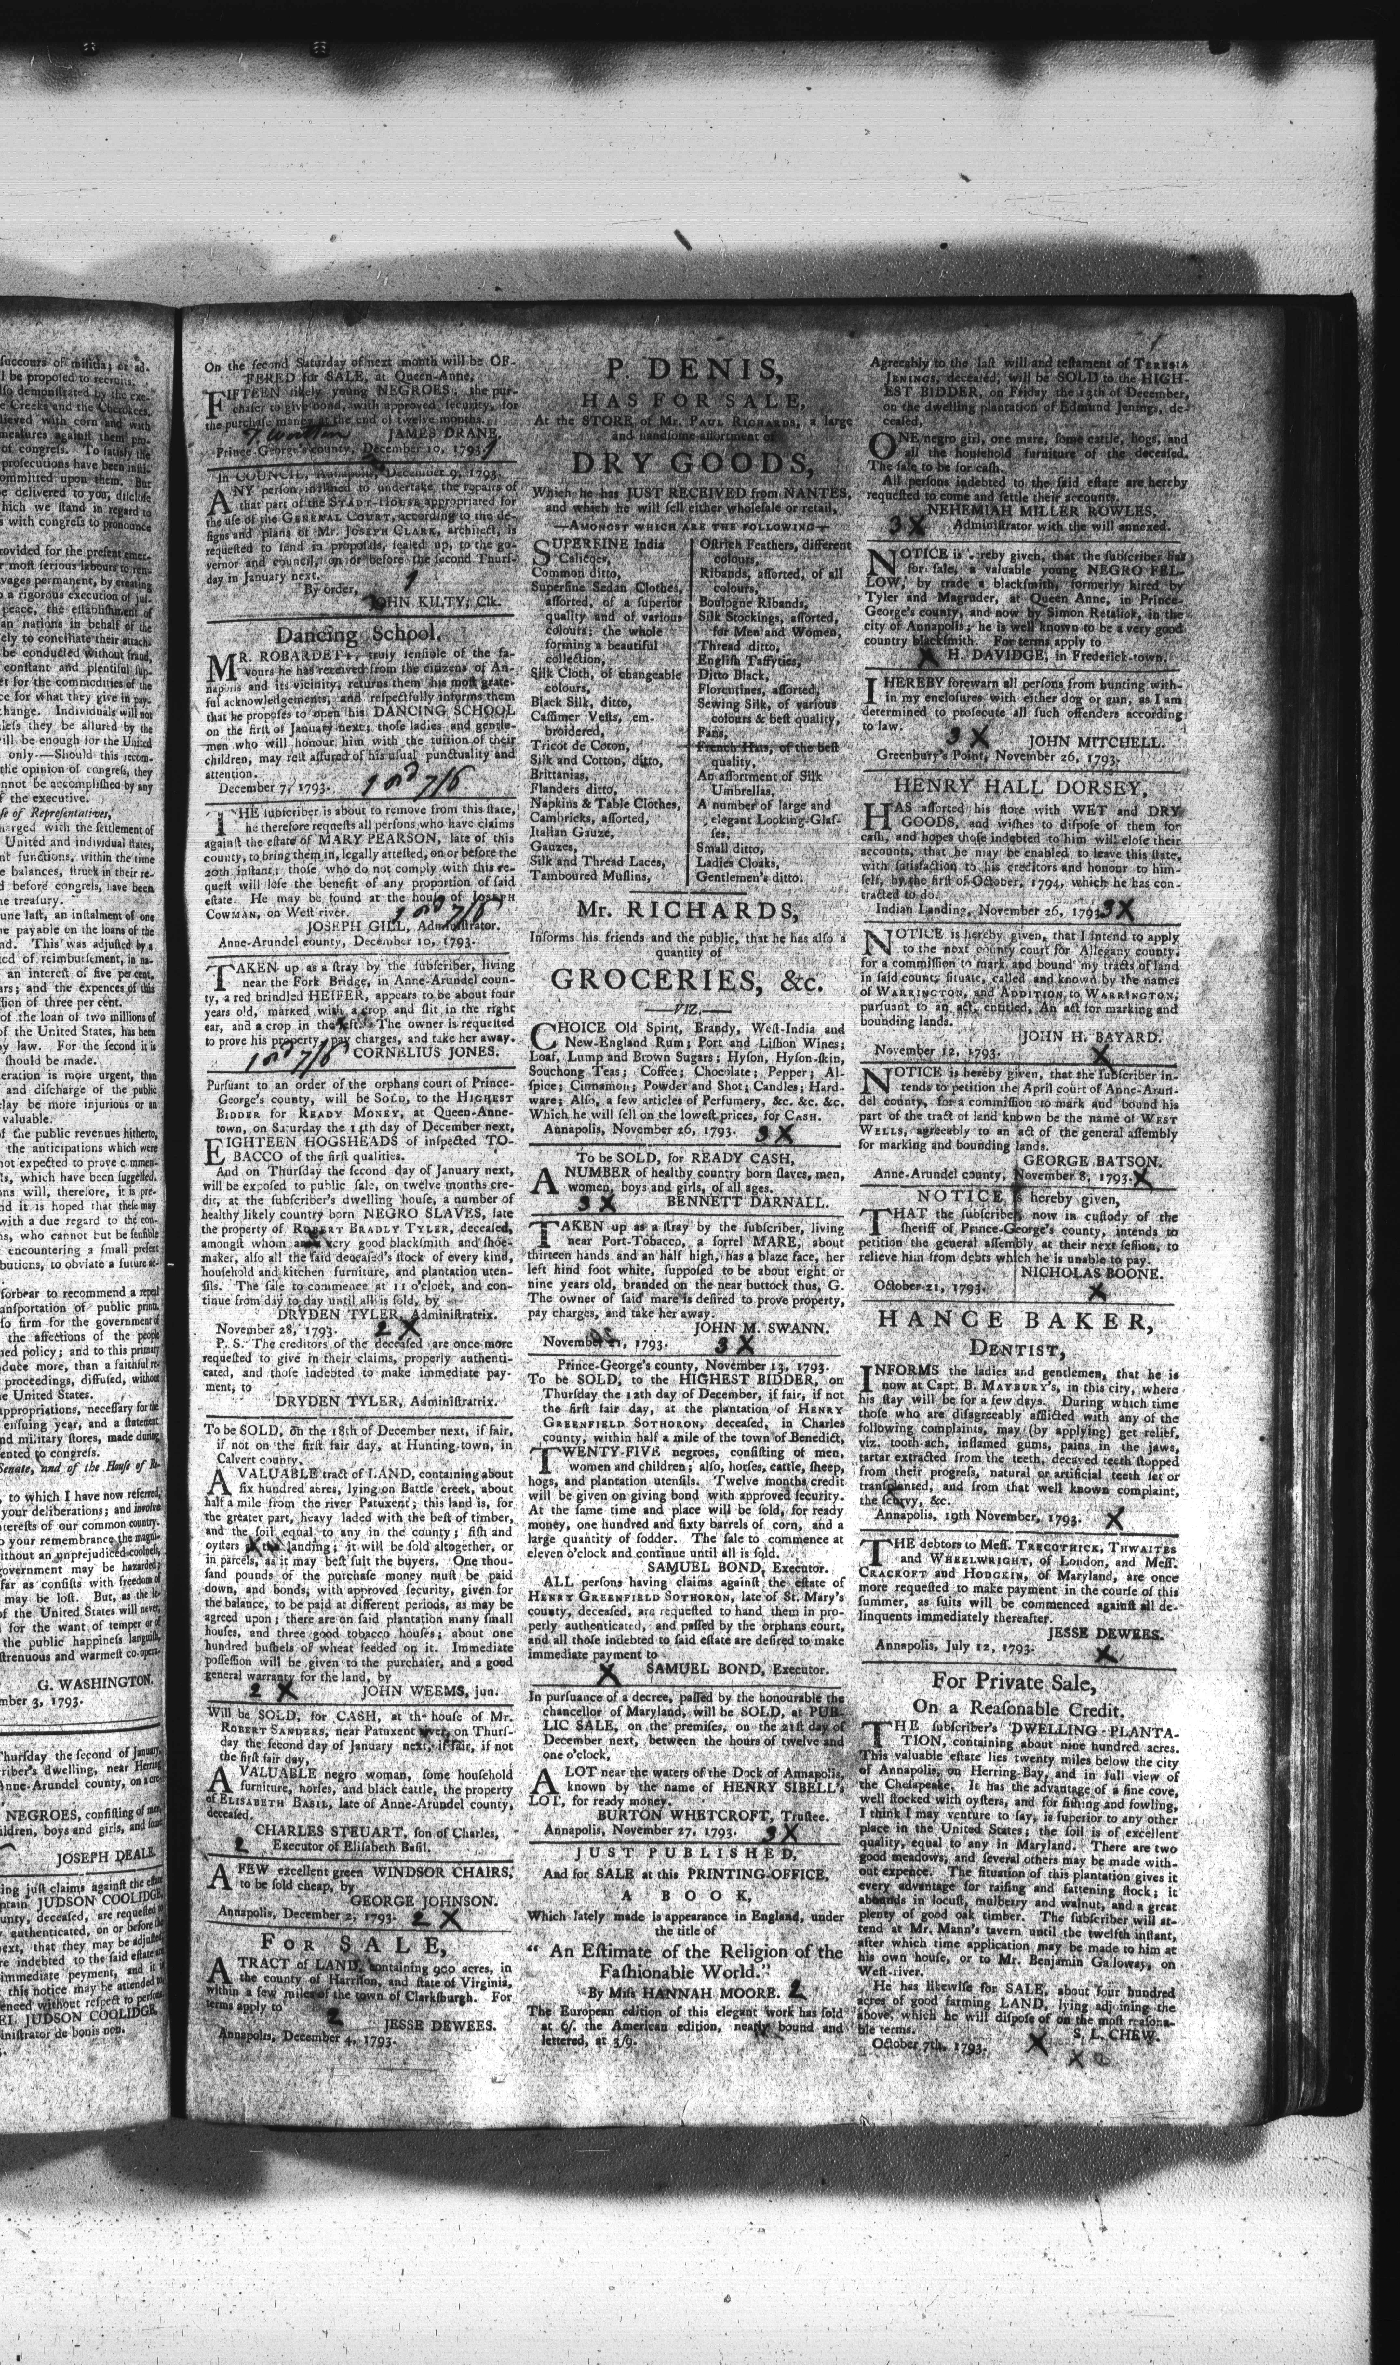 succours of militia; or ad-
l be proposed to recruits.
lso demonstrated by the exe-
e Creeks and the Cherokees.
lieved with corn and with
measures against them pro-
of congress. To satisfy the
prosecutions have been insti-
ommitted upon them. But
e delivered to you, disclose
hich we stand in regard to
s with congress to pronounce
rovided for the present emer-
r most serious labours to ren-
vages permanent, by creating
o a rigorous execution of jus-
peace, the establishment of
an nations in behalf of the
ely to conciliate their attach-
be conducted without fraud,
constant and plentiful sup-
et for the commodities of the
ce for what they give in pay-
change. Individuals will not
less they be allured by the
ill be enough for the United
only.—Should this recom-
the opinion of congress, they
nnot be accomplished by any
f the executive.
se of Representatives,
harged with the settlement of
United and individual states,
nt functions, within the time
e balances, struck in their re-
d before congress, have been
he treasury.
une last, an instalment of one
e payable on the loans of the
nd. This was adjusted by a
od of reimbursement, in na-
an interest of five per cent.
ars; and the expences of this
ssion of three per cent.
of the loan of two millions of
of the United States, has been
by law. For the second it is
should be made.
eration is more urgent, than
and discharge of the public
elay be more injurious or an
valuable.
of the public revenues hitherto,
the anticipations which were
not expected to prove commen-
s, which have been suggested.
ons will, therefore, it is pre-
nd it is hoped that these may
with a due regard to the con-
ns, who cannot but be sensible
encountering a small present
butions, to obviate a future ac-
forbear to recommend a repeal
ansportation of public prints.
so firm for the government of
the affections of the people
ned policy; and to this primary
duce more, than a faithful re-
proceedings, diffused, without
e United States.
appropriations, necessary for the
ensuing year, and a statement
nd military stores, made during
ented to congress.
Senate, and of the House of Re-
, to which I have now referred,
your deliberations; and involve
nterests of our common country.
o your remembrance the magni-
ithout an unprejudiced coolness,
government may be hazarded;
far as consists with freedom of
may be lost. But, as the le-
of the United States will never
for the want of temper or of
the public happiness languish,
strenuous and warmest co-opera-
G. WASHINGTON.
mber 3, 1793.
Thursday the second of January,
riber's dwelling, near Herring
Anne-Arundel county, on a cre-
NEGROES, consisting of men,
ildren, boys and girls, and some
JOSEPH DEALE.
ing just claims against the estate
ptain JUDSON COOLIDGE,
unty, deceased, are requested to
authenticated, on or before the
next, that they may be adjusted
re indebted to the said estate are
immediate peyment, and it is
this notice may be attended to
enced without respect to persons.
EL JUDSON COOLIDGE,
inistrator de bonis non.
On the second Saturday of next month will be OF-
FERED for SALE, at Queen-Anne,
FIFTEEN likely young NEGROES; the pur-
chaser to give bond, with approved security, for
the purchase money at the end of twelve months.
JAMES DRANE.
Prince George's county, December 10, 1793. 1
In COUNCIL, Annapolis, December 9, 1793.
ANY person inclined to undertake the repairs of
that part of the STADT-HOUSE appropriated for
the use of the GENERAL COURT, according to the de-
signs and plans of Mr. JOSEPH CLARK, architect, is
requested to send in proposals, sealed up, to the go-
vernor and council, on or before the second Thurs-
day in January next. 1
By order,
JOHN KILTY, Clk.
Dancing School.
MR. ROBARDET, truly sensible of the fa-
vours he has received from the citizens of An-
napolis and its vicinity, returns them his most grate-
ful acknowledgements, and respectfully informs them
that he proposes to open his DANCING SCHOOL
on the first of January next; those ladies and gentle-
men who will honour him with the tuition of their
children, may rest assured of his usual punctuality and
attention.
December 7, 1793. 1 od 7/6
THE subscriber is about to remove from this state,
he therefore requests all persons who have claims
against the estate of MARY PEARSON, late of this
county, to bring them in, legally attested, on or before the
20th instant; those who do not comply with this re-
quest will lose the benefit of any proportion of said
estate. He may be found at the house of JOSEPH
COWMAN, on West river. 1 od 7/6
JOSEPH GILL, Administrator.
Anne-Arundel county, December 10, 1793.
TAKEN up as a stray by the subscriber, living
near the Fork Bridge, in Anne-Arundel coun-
ty, a red brindled HEIFER, appears to be about four
years old, marked with a crop and slit in the right
ear, and a crop in the left. The owner is requested
to prove his property, pay charges, and take her away.
1 od 7/6 CORNELIUS JONES.
Pursuant to an order of the orphans court of Prince-
George's county, will be SOLD, to the HIGHEST
BIDDER for READY MONEY, at Queen-Anne-
town, on Saturday the 14th day of December next,
EIGHTEEN HOGSHEADS of inspected TO-
BACCO of the first qualities.
And on Thursday the second day of January next,
will be exposed to public sale, on twelve months cre-
dit, at the subscriber's dwelling house, a number of
healthy likely country born NEGRO SLAVES, late
the property of ROBERT BRADLY TYLER, deceased,
amongst whom a very good blacksmith and shoe-
maker, also all the said deceased's stock of every kind,
household and kitchen furniture, and plantation uten-
sils. The sale to commence at 11 o'clock, and con-
tinue from day to day until all is sold, by
DRYDEN TYLER, Administratrix.
November 28, 1793. 2 X
P. S. The creditors of the deceased are once more
requested to give in their claims, properly authenti-
cated, and those indebted to make immediate pay-
ment, to
DRYDEN TYLER, Administratrix.
To be SOLD, on the 18th of December next, if fair,
if not on the first fair day, at Hunting-town, in
Calvert county,
A VALUABLE tract of LAND, containing about
six hundred acres, lying on Battle creek, about
half a mile from the river Patuxent; this land is, for
the greater part, heavy laded with the best of timber,
and the soil equal to any in the county; fish and
oysters at the landing; it will be sold altogether, or
in parcels, as it may best suit the buyers. One thou-
sand pounds of the purchase money must be paid
down, and bonds, with approved security, given for
the balance, to be paid at different periods, as may be
agreed upon; there are on said plantation many small
houses, and three good tobacco houses; about one
hundred bushels of wheat seeded on it. Immediate
possession will be given to the purchaser, and a good
general warranty for the land, by
2 X JOHN WEEMS, jun.
Will be SOLD, for CASH, at the house of Mr.
ROBERT SANDERS, near Patuxent river, on Thurs-
day the second day of January next, if fair, if not
the first fair day,
A VALUABLE negro woman, some household
furniture, horses, and black cattle, the property
of ELISABETH BASIL, late of Anne-Arundel county,
deceased.
CHARLES STEUART, son of Charles,
2 Executor of Elisabeth Basil.
A FEW excellent green WINDSOR CHAIRS,
to be sold cheap, by
GEORGE JOHNSON.
Annapolis, December 2, 1793. 2 X
FOR SALE,
A TRACT of LAND, containing 900 acres, in
the county of Harrison, and state of Virginia,
within a few miles of the town of Clarksburgh. For
terms apply to
2 JESSE DEWEES.
Annapolis, December 4, 1793.
P. DENIS,
HAS FOR SALE,
At the STORE of Mr. PAUL RICHARDS, a large
and handsome assortment of
DRY GOODS,
Which he has JUST RECEIVED from NANTES,
and which he will sell either wholesale or retail,
—AMONGST WHICH ARE THE FOLLOWING—
SUPERFINE India
Calicoes,
Common ditto,
Superfine Sedan Clothes,
assorted, of a superior
quality and of various
colours; the whole
forming a beautiful
collection,
Silk Cloth, of changeable
colours,
Black Silk, ditto,
Cassimer Vests, em-
broidered,
Tricot de Coton,
Silk and Cotton, ditto,
Brittanias,
Flanders ditto,
Napkins & Table Clothes,
Cambricks, assorted,
Italian Gauze,
Gauzes,
Silk and Thread Laces,
Tamboured Muslins,
Ostrich Feathers, different
colours,
Ribands, assorted, of all
colours,
Boulogne Ribands,
Silk Stockings, assorted,
for Men and Women,
Thread ditto,
English Taffyties,
Ditto Black,
Florentines, assorted,
Sewing Silk, of various
colours & best quality,
Fans,
French Hats, of the best
quality,
An assortment of Silk
Umbrellas,
A number of large and
elegant Looking-Glas-
ses,
Small ditto,
Ladies Cloaks,
Gentlemen's ditto.
Mr. RICHARDS,
Informs his friends and the public, that he has also a
quantity of
GROCERIES, &c.
—VIZ.—
CHOICE Old Spirit, Brandy, West-India and
New-England Rum; Port and Lisbon Wines;
Loaf, Lump and Brown Sugars; Hyson, Hyson-skin,
Souchong Teas; Coffee; Chocolate; Pepper; Al-
spice; Cinnamon; Powder and Shot; Candles; Hard-
ware; Also, a few articles of Perfumery, &c. &c. &c.
Which he will sell on the lowest prices, for CASH.
Annapolis, November 26, 1793. 3 X
To be SOLD, for READY CASH,
A NUMBER of healthy country born slaves, men,
women, boys and girls, of all ages.
3 X BENNETT DARNALL.
TAKEN up as a stray by the subscriber, living
near Port-Tobacco, a sorrel MARE, about
thirteen hands and an half high, has a blaze face, her
left hind foot white, supposed to be about eight or
nine years old, branded on the near buttock thus, G.
The owner of said mare is desired to prove property,
pay charges, and take her away.
JOHN M. SWANN.
November 21, 1793. 3 X
Prince-George's county, November 13, 1793.
To be SOLD, to the HIGHEST BIDDER, on
Thursday the 12th day of December, if fair, if not
the first fair day, at the plantation of HENRY
GREENFIELD SOTHORON, deceased, in Charles
county, within half a mile of the town of Benedict,
TWENTY-FIVE negroes, consisting of men,
women and children; also, horses, cattle, sheep,
hogs, and plantation utensils. Twelve months credit
will be given on giving bond with approved security.
At the same time and place will be sold, for ready
money, one hundred and sixty barrels of corn, and a
large quantity of fodder. The sale to commence at
eleven o'clock and continue until all is sold.
SAMUEL BOND, Executor.
ALL persons having claims against the estate of
HENRY GREENFIELD SOTHORON, late of St. Mary's
county, deceased, are requested to hand them in pro-
perly authenticated, and passed by the orphans court,
and all those indebted to said estate are desired to make
immediate payment to
X SAMUEL BOND, Executor.
In pursuance of a decree, passed by the honourable the
chancellor of Maryland, will be SOLD, at PUB-
LIC SALE, on the premises, on the 21st day of
December next, between the hours of twelve and
one o'clock,
A LOT near the waters of the Dock of Annapolis,
known by the name of HENRY SIBELL's
LOT, for ready money.
BURTON WHETCROFT, Trustee.
Annapolis, November 27, 1793. 3 X
JUST PUBLISHED,
And for SALE at this PRINTING-OFFICE,
A BOOK,
Which lately made is appearance in England, under
the title of
“ An Estimate of the Religion of the
Fashionable World.”
By Miss HANNAH MOORE. 2
The European edition of this elegant work has sold
at 6/. the American edition, neatly bound and
lettered, at 3/9.
Agreeably to the last will and testament of TERESIA
JENINGS, deceased, will be SOLD to the HIGH-
EST BIDDER, on Friday the 13th of December,
on the dwelling plantation of Edmund Jenings, de-
ceased,
ONE negro girl, one mare, some cattle, hogs, and
all the household furniture of the deceased.
The sale to be for cash.
All persons indebted to the said estate are hereby
requested to come and settle their accounts.
NEHEMIAH MILLER ROWLES,
3 X Administrator with the will annexed.
NOTICE is hereby given, that the subscriber has
for sale, a valuable young NEGRO FEL-
LOW, by trade a blacksmith, formerly hired by
Tyler and Magruder, at Queen Anne, in Prince-
George's county, and now by Simon Retallok, in the
city of Annapolis; he is well known to be a very good
country blacksmith. For terms apply to
X H. DAVIDGE, in Frederick-town.
I HEREBY forewarn all persons from hunting with-
in my enclosures with either dog or gun, as I am
determined to prosecute all such offenders according
to law.
3 X JOHN MITCHELL.
Greenbury's Point, November 26, 1793.
HENRY HALL DORSEY,
HAS assorted his store with WET and DRY
GOODS, and wishes to dispose of them for
cash, and hopes those indebted to him will close their
accounts, that he may be enabled to leave this state,
with satisfaction to his creditors and honour to him-
self, by the first of October, 1794, which he has con-
tracted to do.
Indian Landing, November 26, 1793. 3 X
NOTICE is hereby given, that I intend to apply
to the next county court for Allegany county,
for a commission to mark and bound my tracts of land
in said county situate, called and known by the names
of WARRINGTON, and ADDITION to WARRINGTON,
pursuant to an act, entitled, An act for marking and
bounding lands.
JOHN H. BAYARD.
November 12, 1793. X
NOTICE is hereby given, that the subscriber in-
tends to petition the April court of Anne-Arun-
del county, for a commission to mark and bound his
part of the tract of land known be the name of WEST
WELLS, agreeably to an act of the general assembly
for marking and bounding lands.
GEORGE BATSON.
Anne-Arundel county, November 8, 1793. X
NOTICE is hereby given,
THAT the subscriber, now in custody of the
sheriff of Prince-George's county, intends to
petition the general assembly, at their next session, to
relieve him from debts which he is unable to pay.
NICHOLAS BOONE.
October 21, 1793. X
HANCE BAKER,
DENTIST,
INFORMS the ladies and gentlemen, that he is
now at Capt. B. MAYBURY's, in this city, where
his stay will be for a few days. During which time
those who are disagreeably afflicted with any of the
following complaints, may (by applying) get relief,
viz. tooth-ach, inflamed gums, pains in the jaws,
tartar extracted from the teeth, decayed teeth stopped
from their progress, natural or artificial teeth set or
transplanted, and from that well known complaint,
the scurvy, &c.
Annapolis, 19th November, 1793. X
THE debtors to Mess. TRECOTHICK, THWAITES
and WHEELWRIGHT, of London, and Mess.
CRACROFT and HODGKIN, of Maryland, are once
more requested to make payment in the course of this
summer, as suits will be commenced against all de-
linquents immediately thereafter.
JESSE DEWEES.
Annapolis, July 12, 1793. X
For Private Sale,
On a Reasonable Credit.
THE subscriber's DWELLING PLANTA-
TION, containing about nine hundred acres.
This valuable estate lies twenty miles below the city
of Annapolis, on Herring-Bay, and in full view of
the Chesapeake. It has the advantage of a fine cove,
well stocked with oysters, and for fishing and fowling,
I think I may venture to say, is superior to any other
place in the United States; the soil is of excellent
quality, equal to any in Maryland. There are two
good meadows, and several others may be made with-
out expence. The situation of this plantation gives it
every advantage for raising and fattening stock; it
abounds in locust, mulberry and walnut, and a great
plenty of good oak timber. The subscriber will at-
tend at Mr. Mann's tavern until the twelfth instant,
after which time application may be made to him at
his own house, or to Mr. Benjamin Galloway, on
West-river.
He has likewise for SALE, about four hundred
acres of good farming LAND, lying adjoining the
above, which he will dispose of on the most reasona-
ble terms.
S. L. CHEW.
October 7th, 1793. X
X